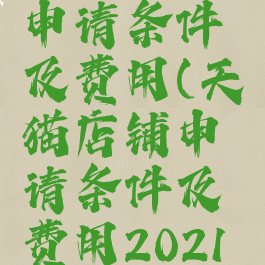 申请条件
及费用(天
猫店铺申
请条件及
费用2021